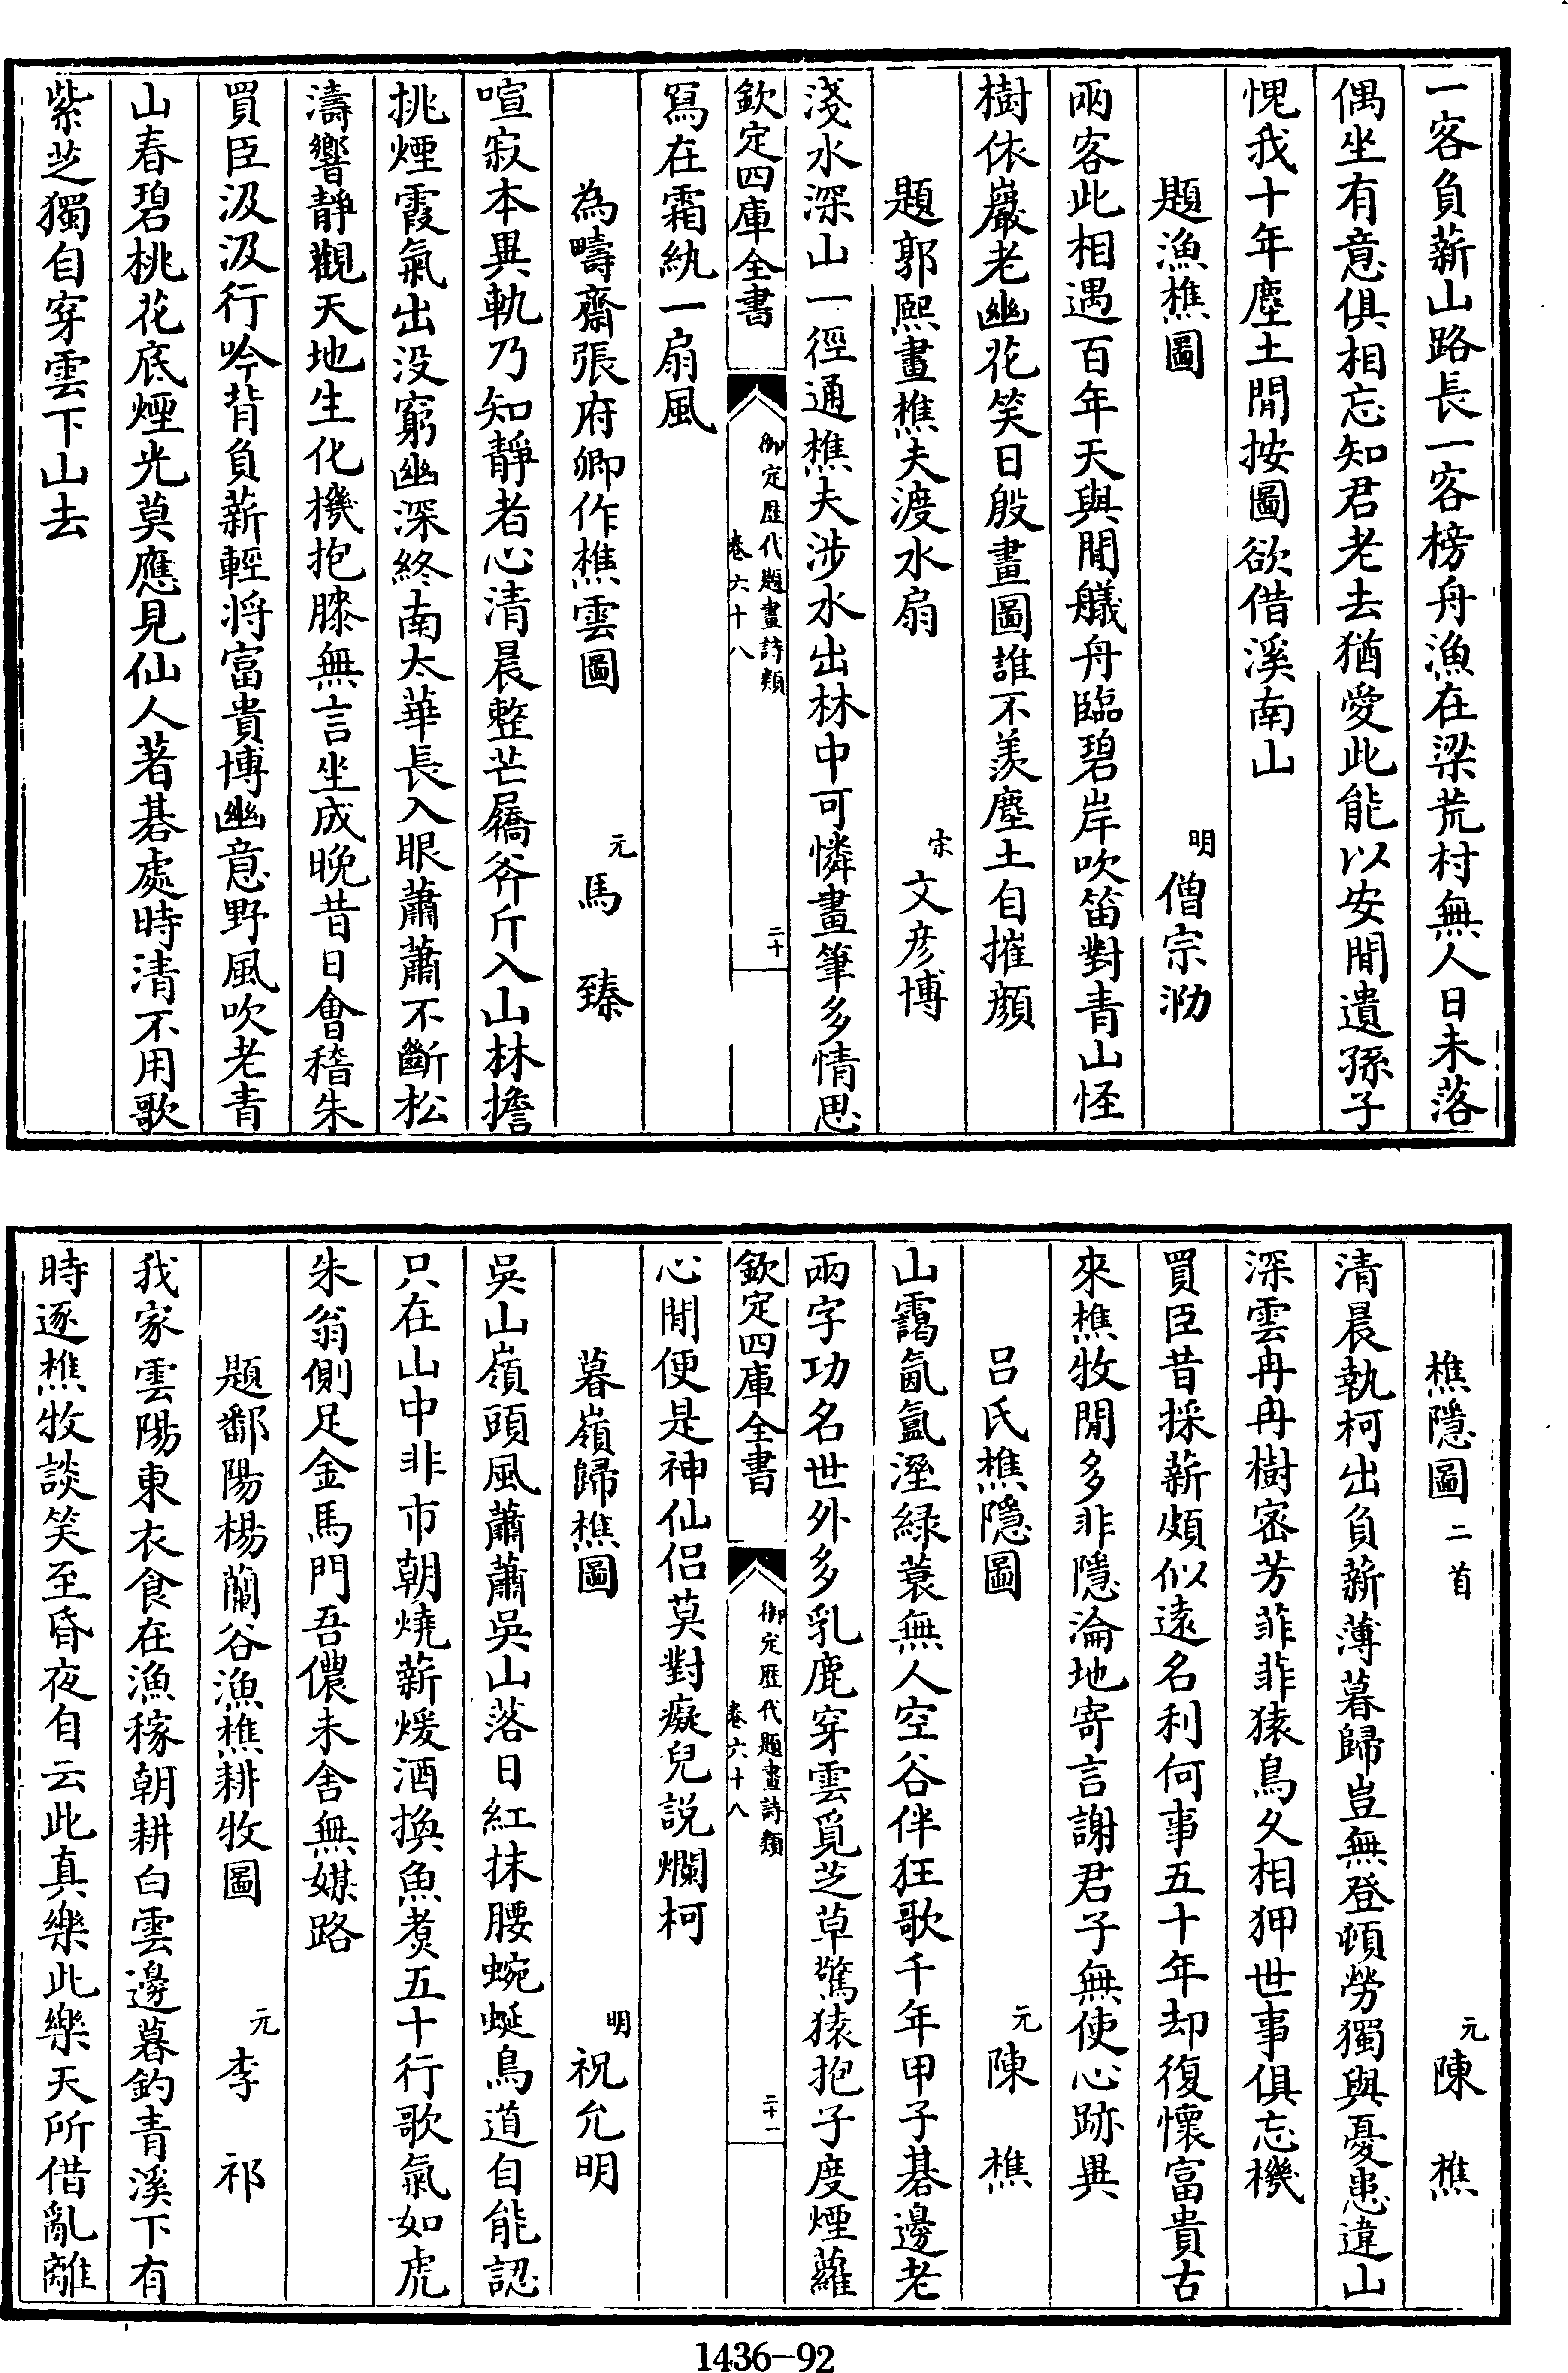 一客負薪山路長一客榜舟漁在梁荒村無人日未落
偶坐有意俱相忘知君老去猶愛此能以安閒遺孫子
愧我十年塵土閒按圖欲借溪南山
題漁樵圖 明 僧宗泐
兩客此相遇百年天與閒艤舟臨碧岸吹笛對青山怪
樹依巖老幽花笑日殷畫圖誰不羨塵土自摧顔
題郭熙畫樵夫渡水扇 宋 文彦博
淺水深山一徑通樵夫涉水出林中可憐畫筆多情思
欽定四庫全書 御定歴代題畫詩類 卷六十八 二十
寫在霜紈一扇風
為疇齋張府卿作樵雲圖 元 馬臻
喧寂本異軌乃知靜者心清晨整芒屩斧斤入山林擔
挑煙霞氣出没窮幽深終南太華長入眼蕭蕭不斷松
濤響靜觀天地生化機抱膝無言坐成晚昔日會稽朱
買臣汲汲行吟背負薪輕将富貴博幽意野風吹老青
山春碧桃花底煙光莫應見仙人著碁處時清不用歌
紫芝獨自穿雲下山去
樵隱圖 二首 元 陳樵
清晨執柯出負薪薄暮歸豈無登頓勞獨與憂患違山
深雲冉冉樹密芳菲菲猿鳥久相狎世事俱忘機
買臣昔採薪頗似遠名利何事五十年却復懷富貴古
來樵牧閒多非隱淪地寄言謝君子無使心跡異
吕氏樵隱圖 元 陳樵
山靄氤氲溼緑蓑無人空谷伴狂歌千年甲子碁邊老
兩字功名世外多乳鹿穿雲覓芝草驚猿抱子度煙蘿
欽定四庫全書 御定歴代題畫詩類 卷六十八 二十一
心閒便是神仙侣莫對癡兒説爛柯
暮嶺歸樵圖 明 祝允明
吳山嶺頭風蕭蕭吳山落日紅抹腰蜿蜒鳥道自能認
只在山中非市朝燒薪煖酒換魚煮五十行歌氣如虎
朱翁側足金馬門吾儂未舍無媒路
題鄱陽楊蘭谷漁樵耕牧圖 元 李祁
我家雲陽東衣食在漁稼朝耕白雲邊暮釣青溪下有
時逐樵牧談笑至昏夜自云此真樂此樂天所借亂離
1436-92